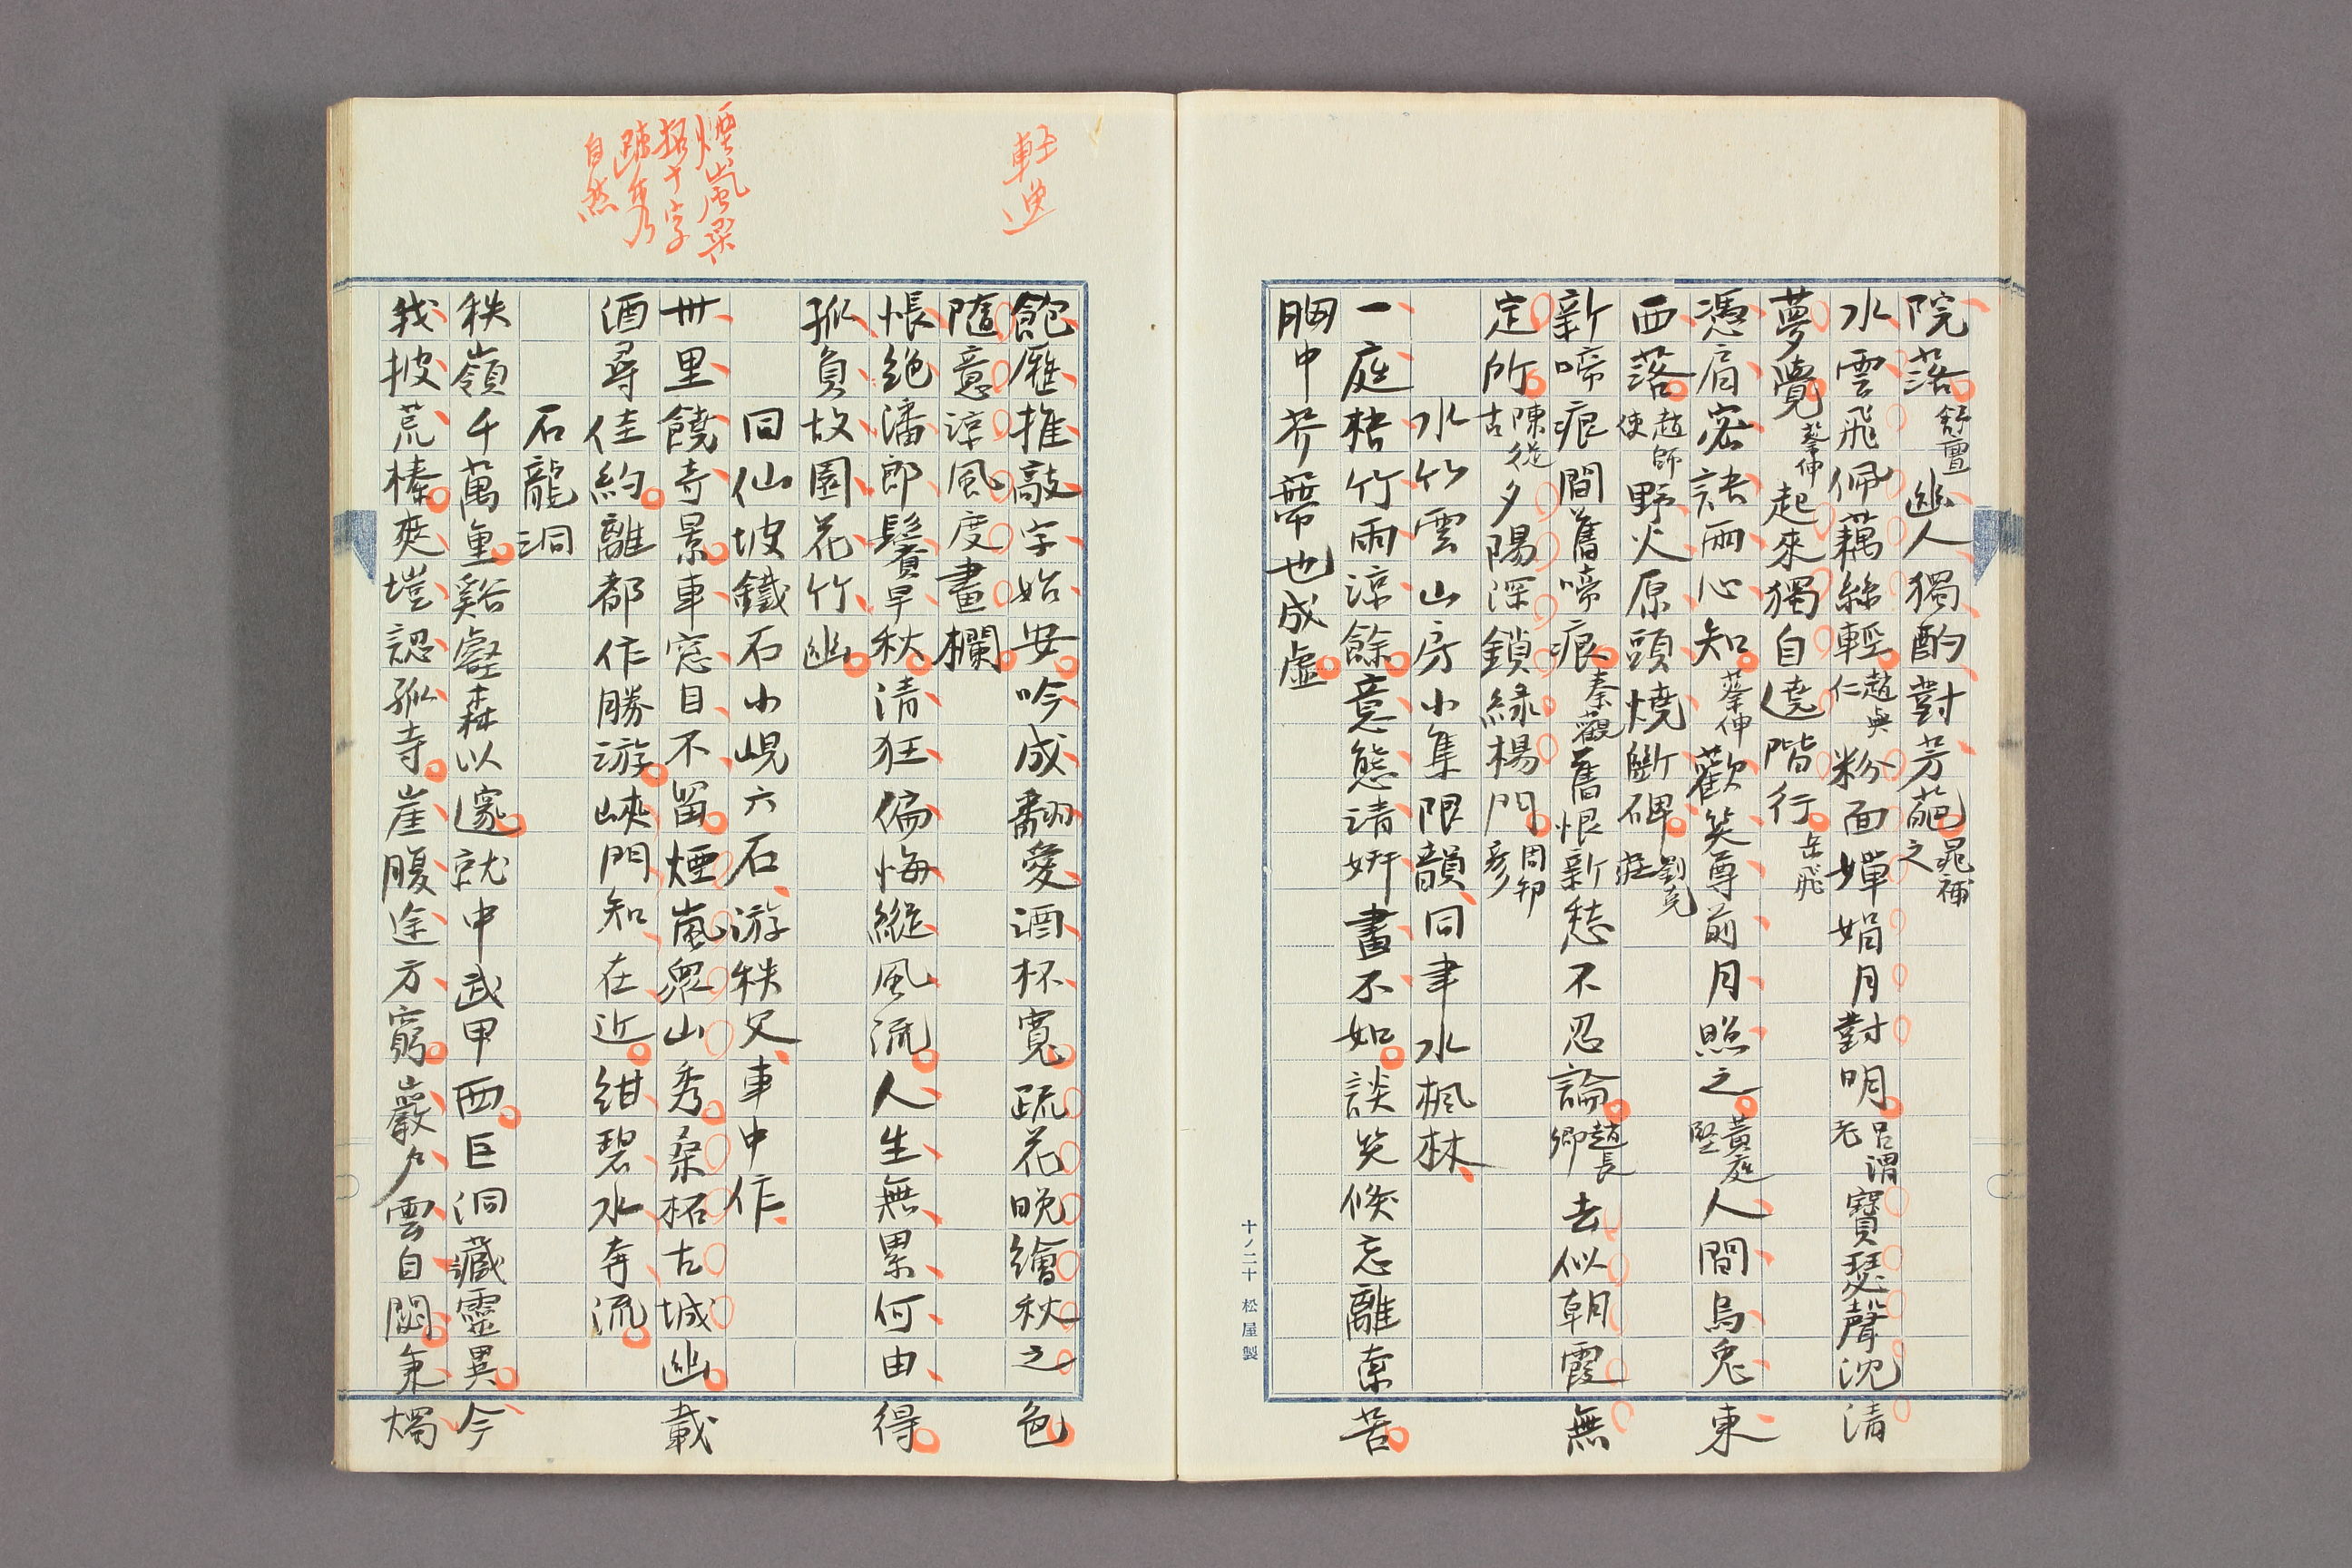 院落舒亶幽人獨酌對芳葩晁補之
水雲飛佩藕絲輕趙與仁粉面嬋娟月對明呂渭老寶瑟聲沈清
夢覺蔡伸起來獨自遶階行岳飛
憑肩密訣兩心知蔡伸歡笑尊前月照之黃庭堅人間烏兔東
西落趙師使野火原頭燒斷碑劉克莊
新啼痕間舊啼痕秦觀舊恨新愁不忍論趙長卿去似朝霞無
定所陳從古夕陽深鎖綠楊門周邦彥
水竹雲山房小集限韻同聿水楓林
一庭梧竹雨涼餘意態清妍畫不如談笑倏忘離索苦
胸中芥蔕也成虛
十ノ二十 松屋製
輕逸
飽雁推敲字始安吟成翻愛酒杯寬疏花晚繪秋之色
隨意涼風度畫欄
悵絕潘郎鬢早秋清狂偏悔縱風流人生無累何由得
孤負故園花竹幽
同仙坡鐵石小峴六石游秩父車中作
煙嵐眾
招十字
疎秀
自然
卅里饒奇景車窓目不留煙嵐眾山秀桑柘古城幽載
酒尋佳約離都作勝游峽門知在近紺碧水奔流
石龍洞
秩嶺千萬重谿壑森以邃就中武甲西巨洞藏靈異今
我披荒榛爽塏認孤寺崖腹途方窮巖夕雲自閟秉燭